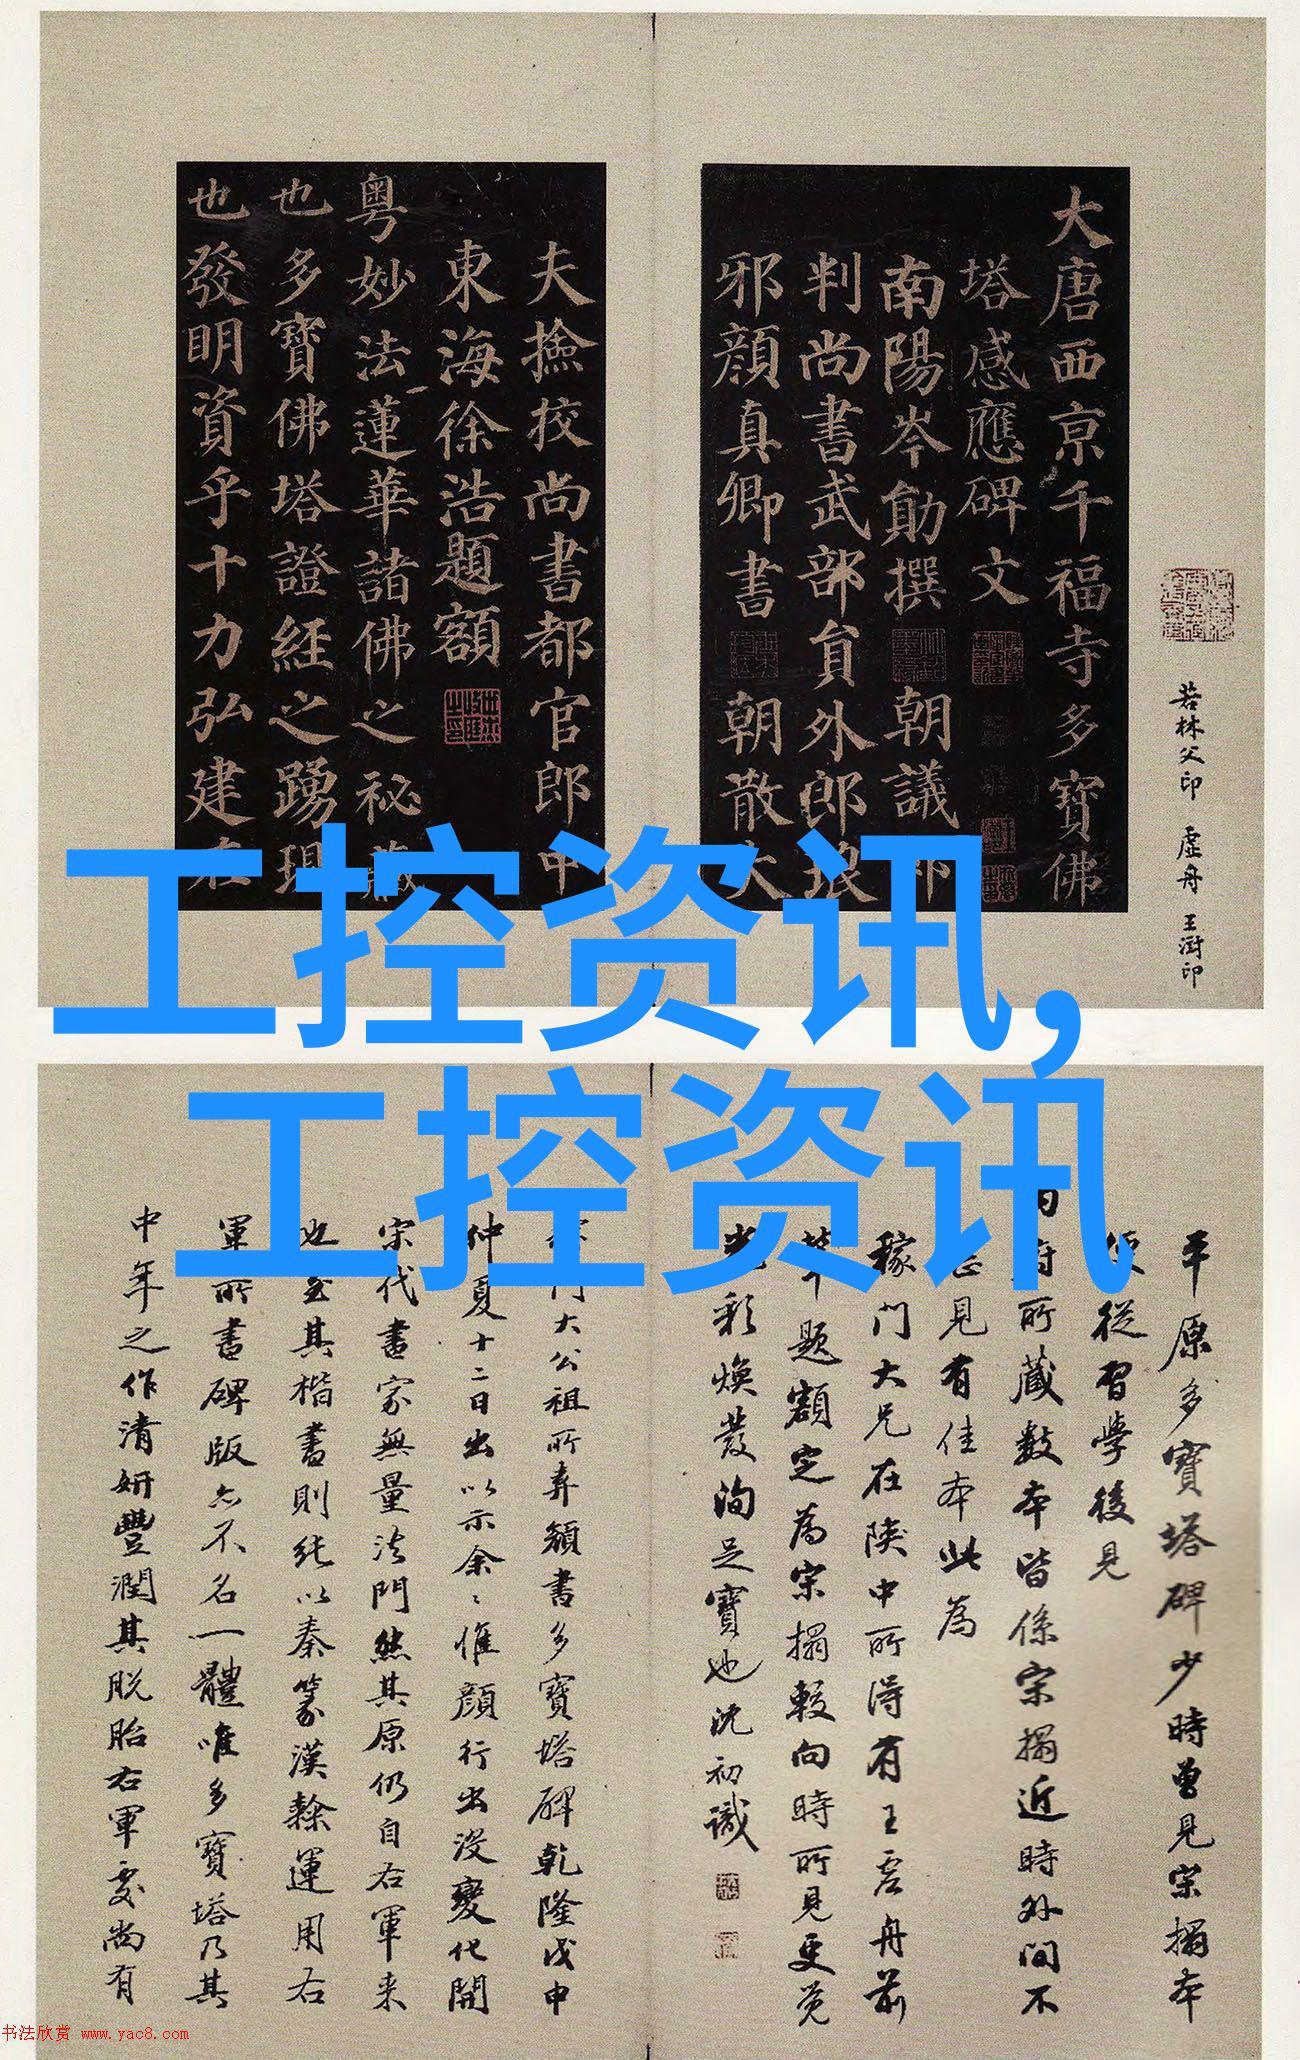 大唐西京千福寺多寶佛
塔感應碑文
南陽岑勛撰
朝議
判尚書武部員外郎琅
邪顏真卿書
朝散大
夫撿挍尚書都官郎中
東海徐浩題額
粵妙法蓮華諸佛之祕
也多寶佛塔證經之踴現
也發明資乎十力弘建在
若林父印 虛舟 王澍印
工控资讯,
工控资讯
平原多寶塔碑少時曾見宋搨本
從習學後見
府所藏數本皆係宋搨近時外間不
見有佳本此為
稼門大兄在陝中所得有王虛舟前
輩題額定為宋搨較向時所見更覺
光彩煥發洵足寶也沈初識
門大公祖所弆顏書多寶塔碑乾隆戊申
仲夏十二日出以示余余惟顏行出沒變化開
宋代書家無量法門然其原仍自右軍來
也至其楷書則純以秦篆漢隸運用右
軍所書碑版亦不名一體唯多寶塔乃其
中年之作清妍豐潤其脫胎右軍處尚有
书法欣赏 www.yac8.com